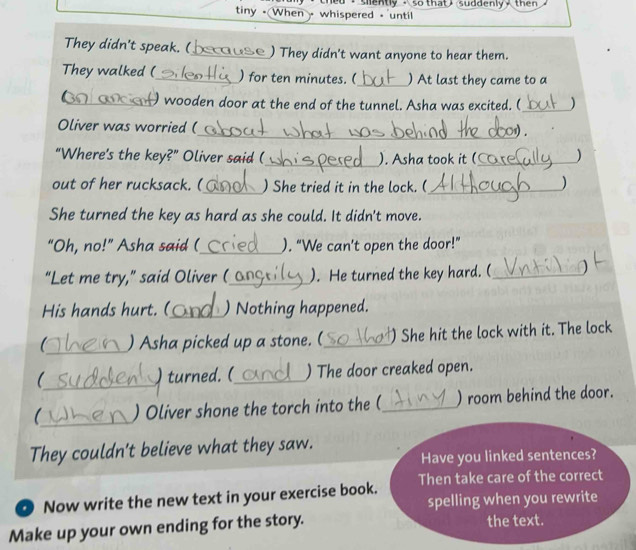 silently • so that suddenly then
tiny • When • whispered • until
They didn't speak. ( because ) They didn't want anyone to hear them.
They walked ( silently ) for ten minutes. ( but ) At last they came to a
( an ancient ) wooden door at the end of the tunnel. Asha was excited. ( but )
Oliver was worried ( about what was behind the door ).
"Where's the key?" Oliver said ( whispered ). Asha took it ( carefully )
out of her rucksack. ( and ) She tried it in the lock. ( Although )
She turned the key as hard as she could. It didn't move.
"Oh, no!" Asha said ( cried ). "We can't open the door!"
"Let me try," said Oliver ( angrily ). He turned the key hard. ( Until )
His hands hurt. ( and ) Nothing happened.
( Then ) Asha picked up a stone. ( so that ) She hit the lock with it. The lock
( suddenly ) turned. ( and ) The door creaked open.
( When ) Oliver shone the torch into the ( tiny ) room behind the door.
They couldn't believe what they saw.
Have you linked sentences?
Then take care of the correct
spelling when you rewrite
the text.
Now write the new text in your exercise book.
Make up your own ending for the story.